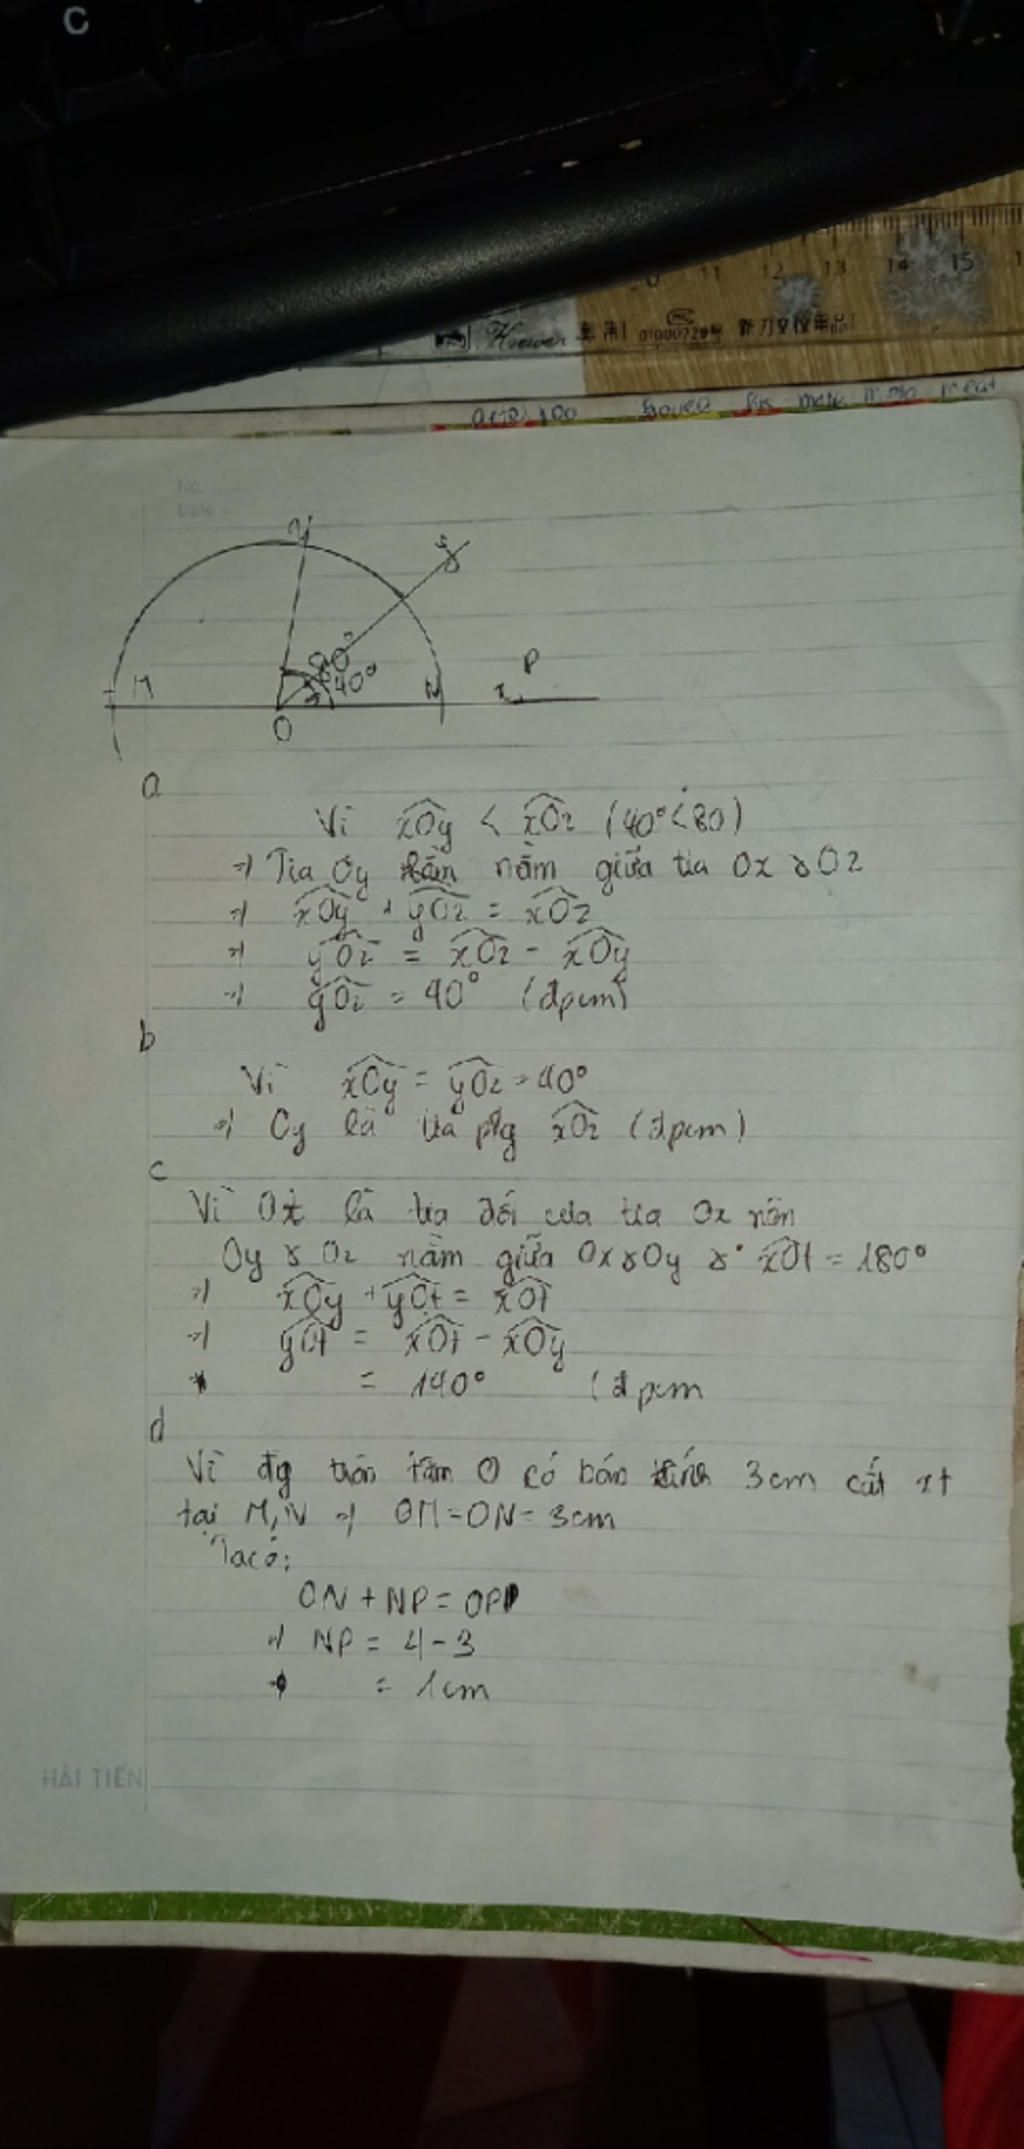 C
11 12 13 14 15
Kuewen 01000729号
No.
Date
y
80°
40°
M
N
P
x
O
a
Vì xOy < xOz (40° < 80)
⇒ Tia Oy nằm giữa tia Ox & Oz
⇒ xOy + yOz = xOz
⇒ yOz = xOz - xOy
⇒ yOz = 40° (đpcm)
b
Vì xOy = yOz = 40°
⇒ Oy là tia pg xOz (đpcm)
c
Vì Ot là tia đối của tia Ox nên
Oy & Oz nằm giữa Ox & Oy & xOt = 180°
⇒ xOy + yOt = xOt
⇒ yOt = xOt - xOy
= 140° (đpcm
d
Vì đg tròn tâm O có bán kính 3cm cắt xt
tại M, N ⇒ OM = ON = 3cm
Ta có:
ON + NP = OP
⇒ NP = 4 - 3
= 1cm
HẢI TIẾN